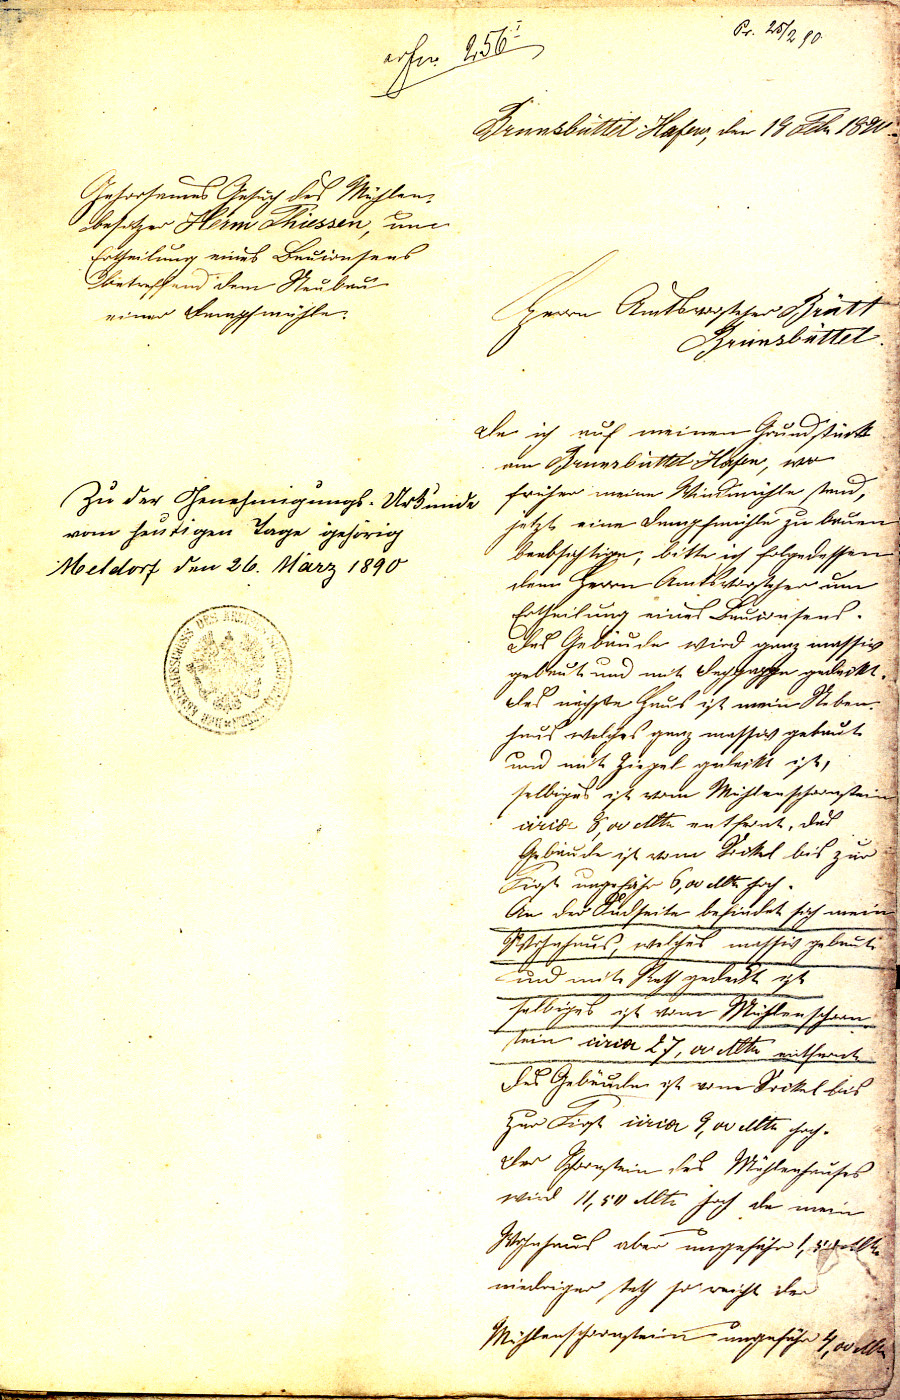 Pr. 25/2 90
256 I
Brunsbüttel Hafen, den 19 Feb. 1890.
Gehorsames Gesuch des Mühlen-
besitzer Herm Thiessen, um
Ertheilung eines Bauconsens
betreffend dem Neubau
einer Dampfmühle.
Herrn Amtsvorsteher Brütt
Brunsbüttel.
Zu der Genehmigungs-Urkunde
vom heutigen Tage gehörig
Meldorf den 26. März 1890
DER KREISAUSSCHUSS DES KREISES
Da ich auf meinen Grundstück
am Brunsbüttel Hafen, wo
früher meine Windmühle stand,
jetzt eine Dampfmühle zu bauen
beabsichtige, bitte ich folgedessen
dem Herrn Amtsvorsteher um
Ertheilung eines Bauconsens.
Das Gebäude wird ganz massiv
gebaut und mit Dachpappe gedeckt.
Das nächste Haus ist mein Neben-
haus welches ganz massiv gebaut
und mit Ziegel gedeckt ist,
selbiges ist vom Mühlenschornstein
circa 8,00 Mtr entfernt, das
Gebäude ist vom Sockel bis zur
First ungefähr 6,00 Mtr hoch.
An der Südseite befindet sich mein
Wohnhaus, welches massiv gebaut
und mit Reth gedeckt ist
selbiges ist vom Mühlenschorn
stein circa 27,00 Mtr entfernt
Das Gebäude ist vom Sockel bis
zur First circa 9,00 Mtr hoch.
Der Schornstein des Mühlenhauses
wird 11,50 Mtr hoch da mein
Wohnhaus aber ungefähr 1,50 Mtr
niedriger steht so reicht der
Mühlenschornstein ungefähr 4,00 Mtr